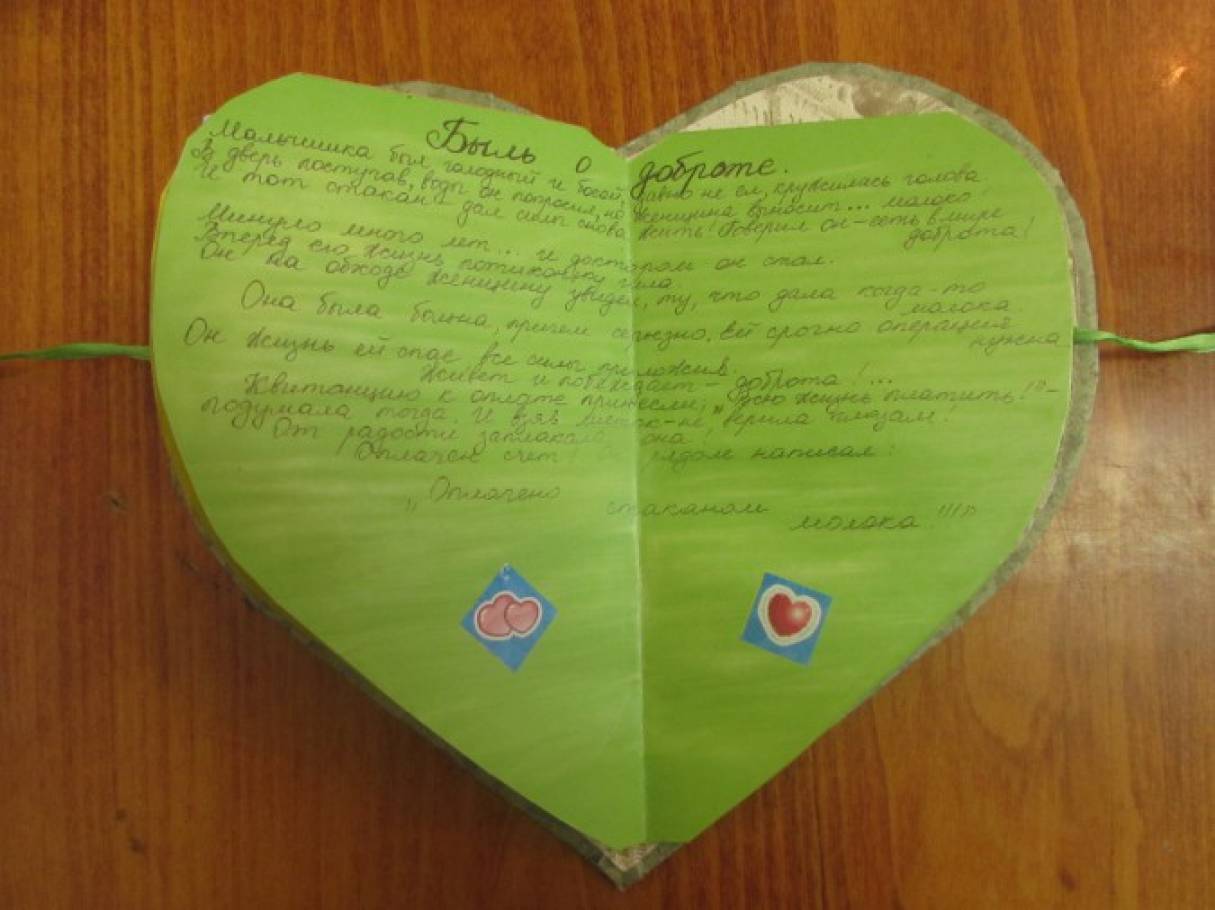 Быль о доброте.
Малышишка был голодный и босой, давно не ел, кружилась голова
В дверь постучав, воды он попросил, но женщина выносит... молоко
И тот стакан дал сил снова жить! Поверил он-есть в мире
доброта!
Минуло много лет... и доктором он стал.
Вперед его жизнь потихоньку шла.
Он на обходе женщину увидел, ту, что дала когда-то
молока.
Она была больна, причем серьезно. Ей срочно операция
нужна
Он жизнь ей спас, все силы приложив.
Живет и побеждает - доброта!...
Квитанцию к оплате принесли; „Всю жизнь платить!"-
подумала тогда. И взяв листок-не верила глазам!
От радости заплакала она,
Оплачен счет! Он рядом написал:
„Оплачено стаканом
молока!!!"